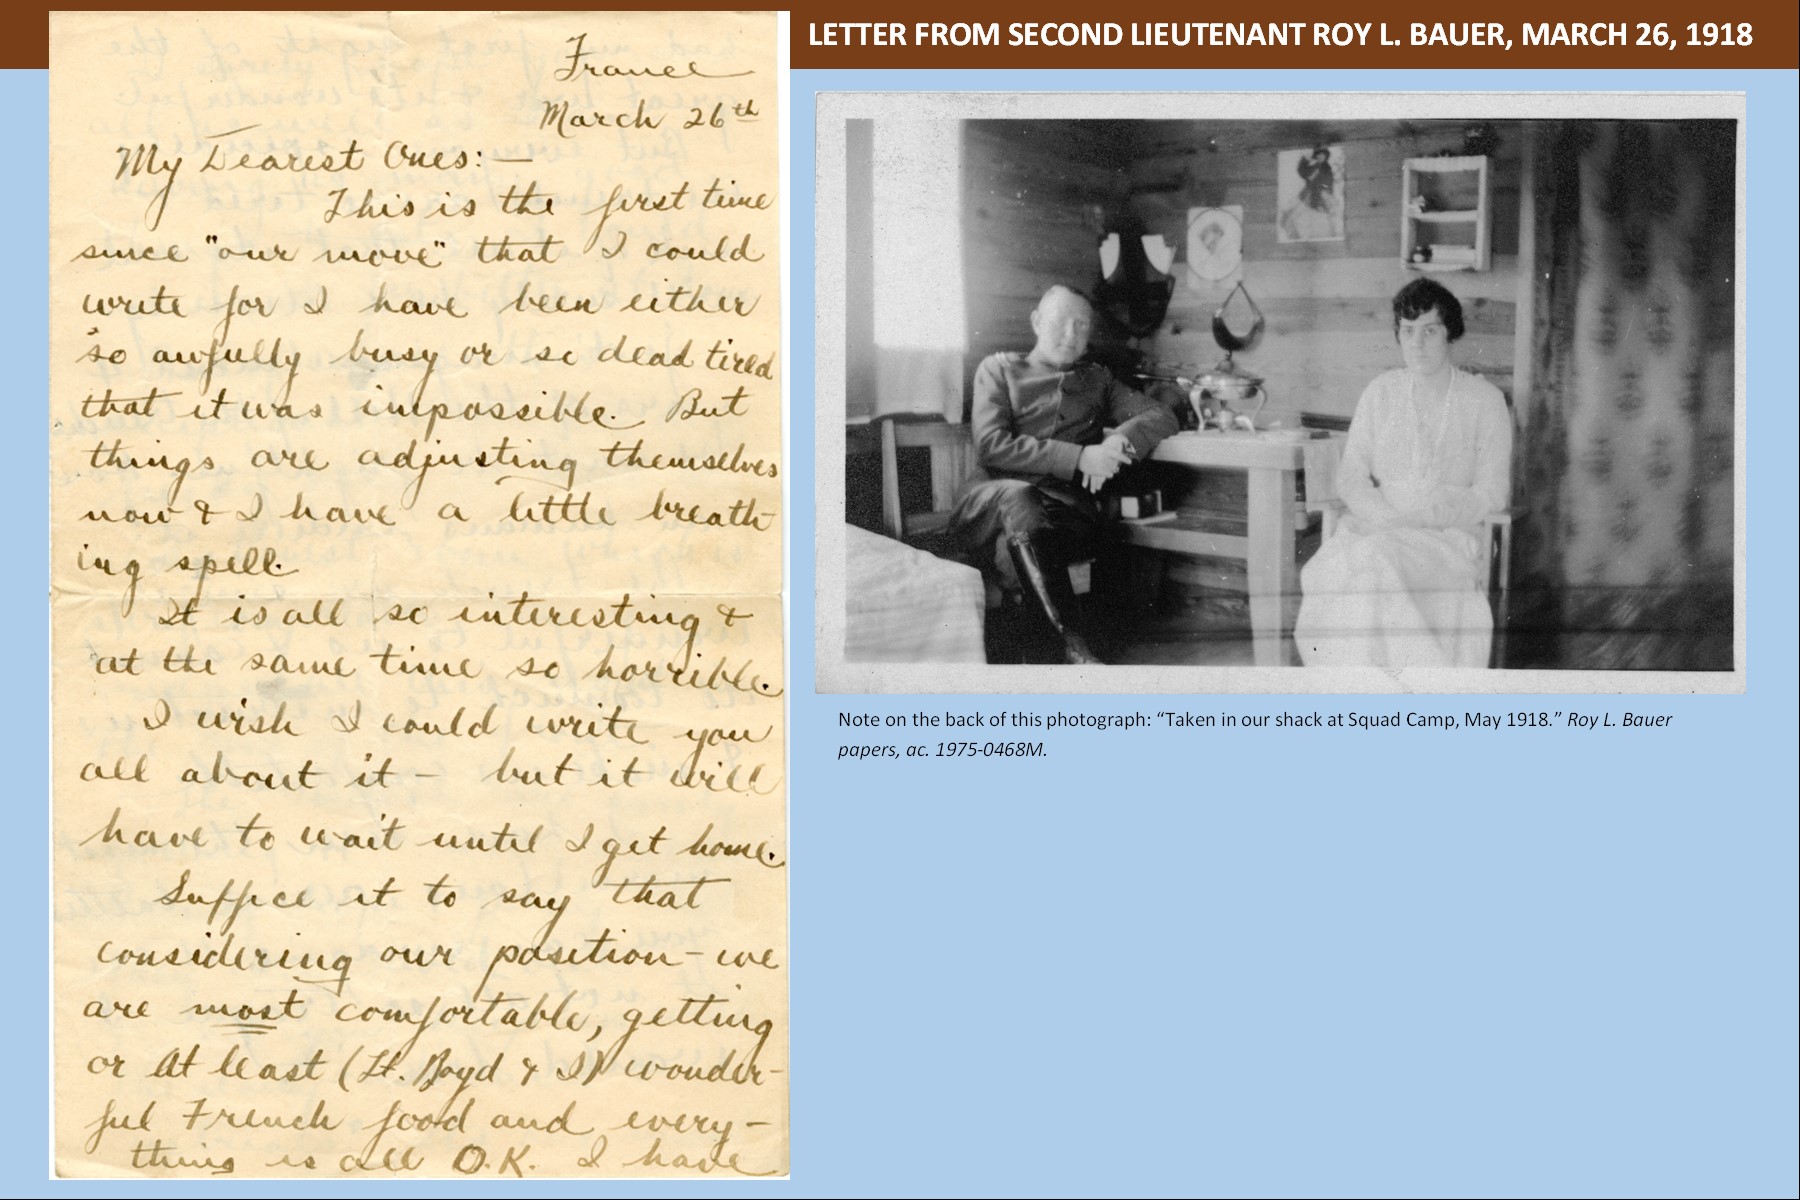 LETTER FROM SECOND LIEUTENANT ROY L. BAUER, MARCH 26, 1918
France
March 26th
My Dearest Ones:—
This is the first time
since "our move" that I could
write for I have been either
so awfully busy or so dead tired
that it was impossible. But
things are adjusting themselves
now & I have a little breath-
ing spell.
It is all so interesting &
at the same time so horrible.
I wish I could write you
all about it – but it will
have to wait until I get home.
Suffice it to say that
considering our position – we
are most comfortable, getting
or at least (Lt. Boyd & I) wonder-
ful French food and every-
thing is all O.K. I have
Note on the back of this photograph: “Taken in our shack at Squad Camp, May 1918.” Roy L. Bauer
papers, ac. 1975-0468M.